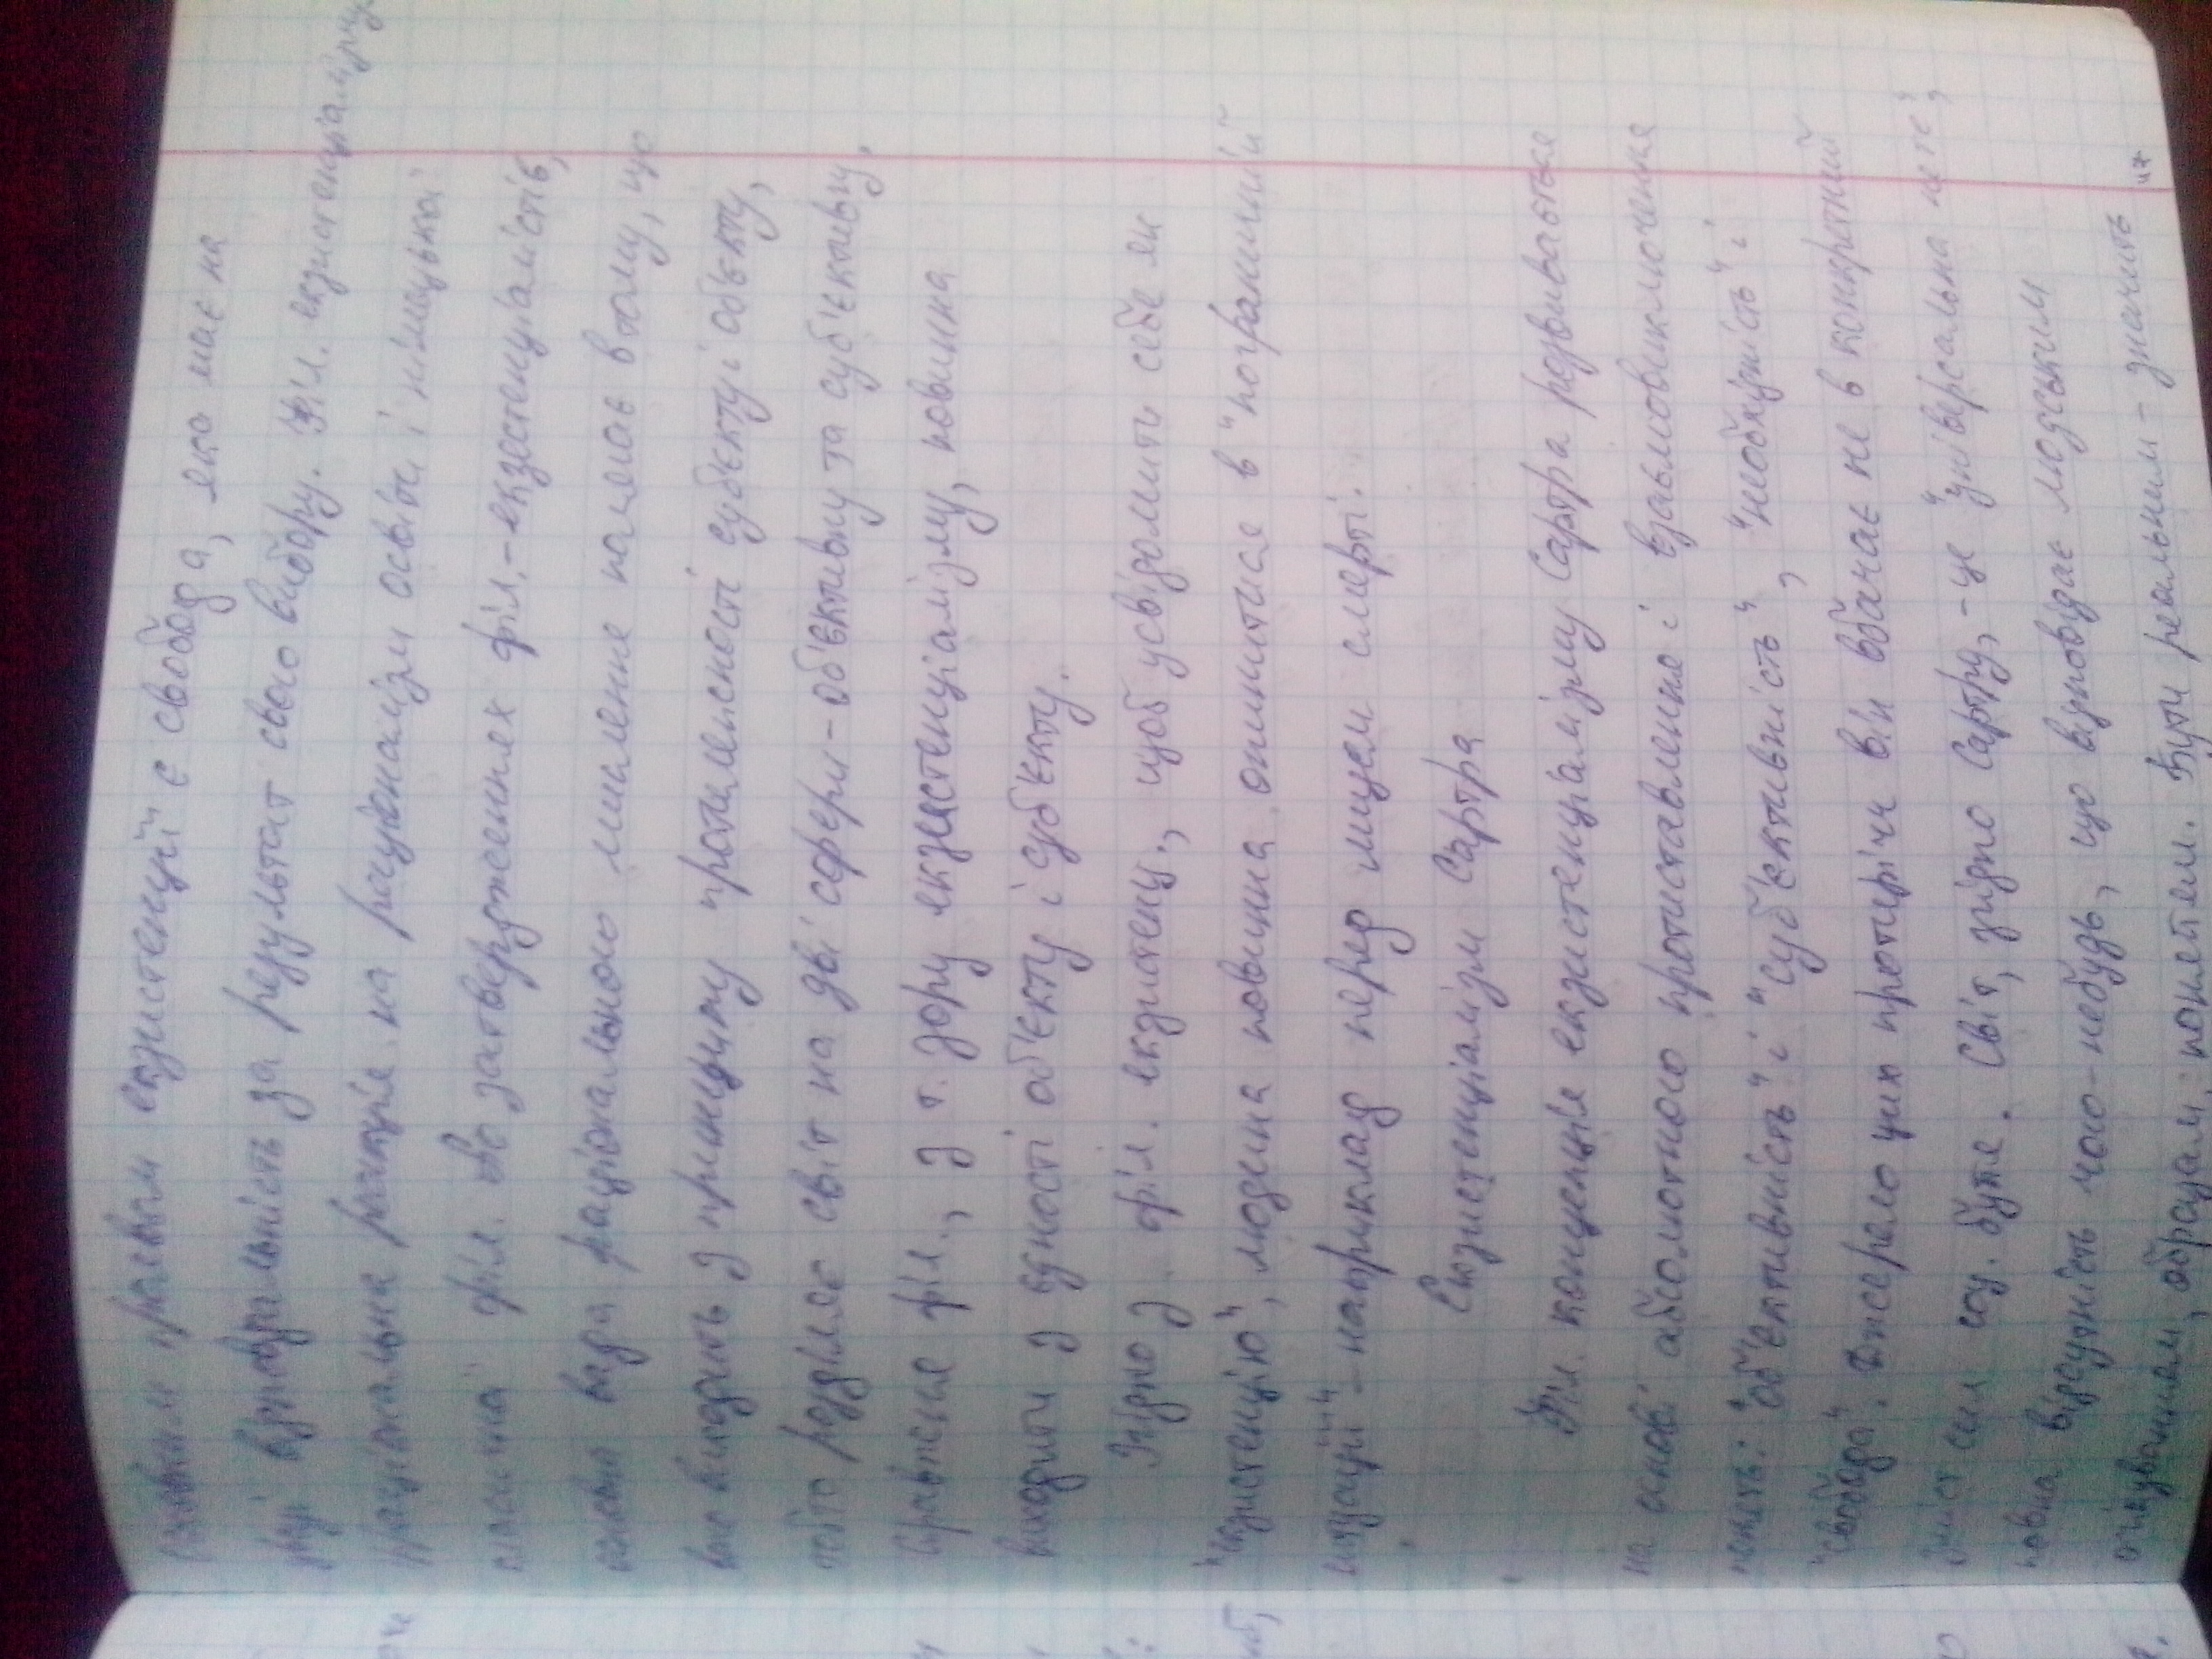 основним проявом екзистенції є свобода, яка має на
увазі відповідальність за результат свого вибору. Філ. екзистенціалізму
раціональна реакція на раціоналізм освіти і німецької
класичної філ. По затвердженнях філ.-екзестенціалістів,
основна вада раціонального мислення полягає в тому, що
воно виходить з принципу протилежності суб'єкту і об'єкту,
тобто розділяє світ на дві сфери - об'єктивну та суб'єктивну.
Справжня філ., з т. зору екзистенціалізму, повинна
виходити з єдності об'єкту і суб'єкту.
Згідно з філ. екзистенц., щоб усвідомити себе як
"екзистенцію", людина повинна опинитися в "пограничній
ситуації" - наприклад перед лицем смерті.
Екзистенціалізм Сартра
Філ. концепція екзистенціалізму Сартра розвивається
на основі абсолютного протиставлення і взаємовиключення
понять: "об'єктивність" і "суб'єктивність", "необхідність" і
"свобода". Джерело цих протиріч він вбачає не в конкретний
зміст сил соц. буття. Світ, згідно Сартру, - це "універсальна не те",
повна відсутність чого-небудь, що відповідає людським
очікуванням, образам, поняттям. Бути реальним - значить
47